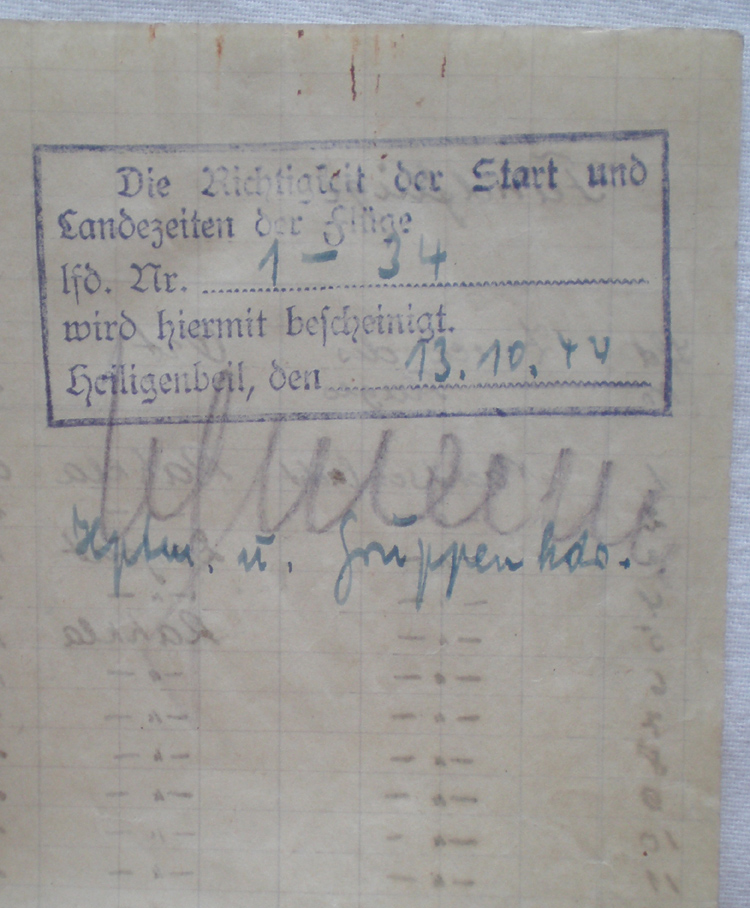 Die Richtigkeit der Start und
Landezeiten der Flüge
lfd. Nr. 1 – 34
wird hiermit bescheinigt.
Heiligenbeil, den 13.10.44
Hptm. u. Gruppenkdr.